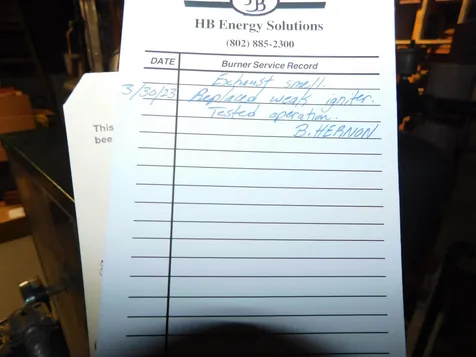 HB
HB Energy Solutions
(802) 885-2300
DATE Burner Service Record
Exhaust smell.
3/30/23 Replaced weak igniter.
Tested operation.
B. HERNON
This
bee